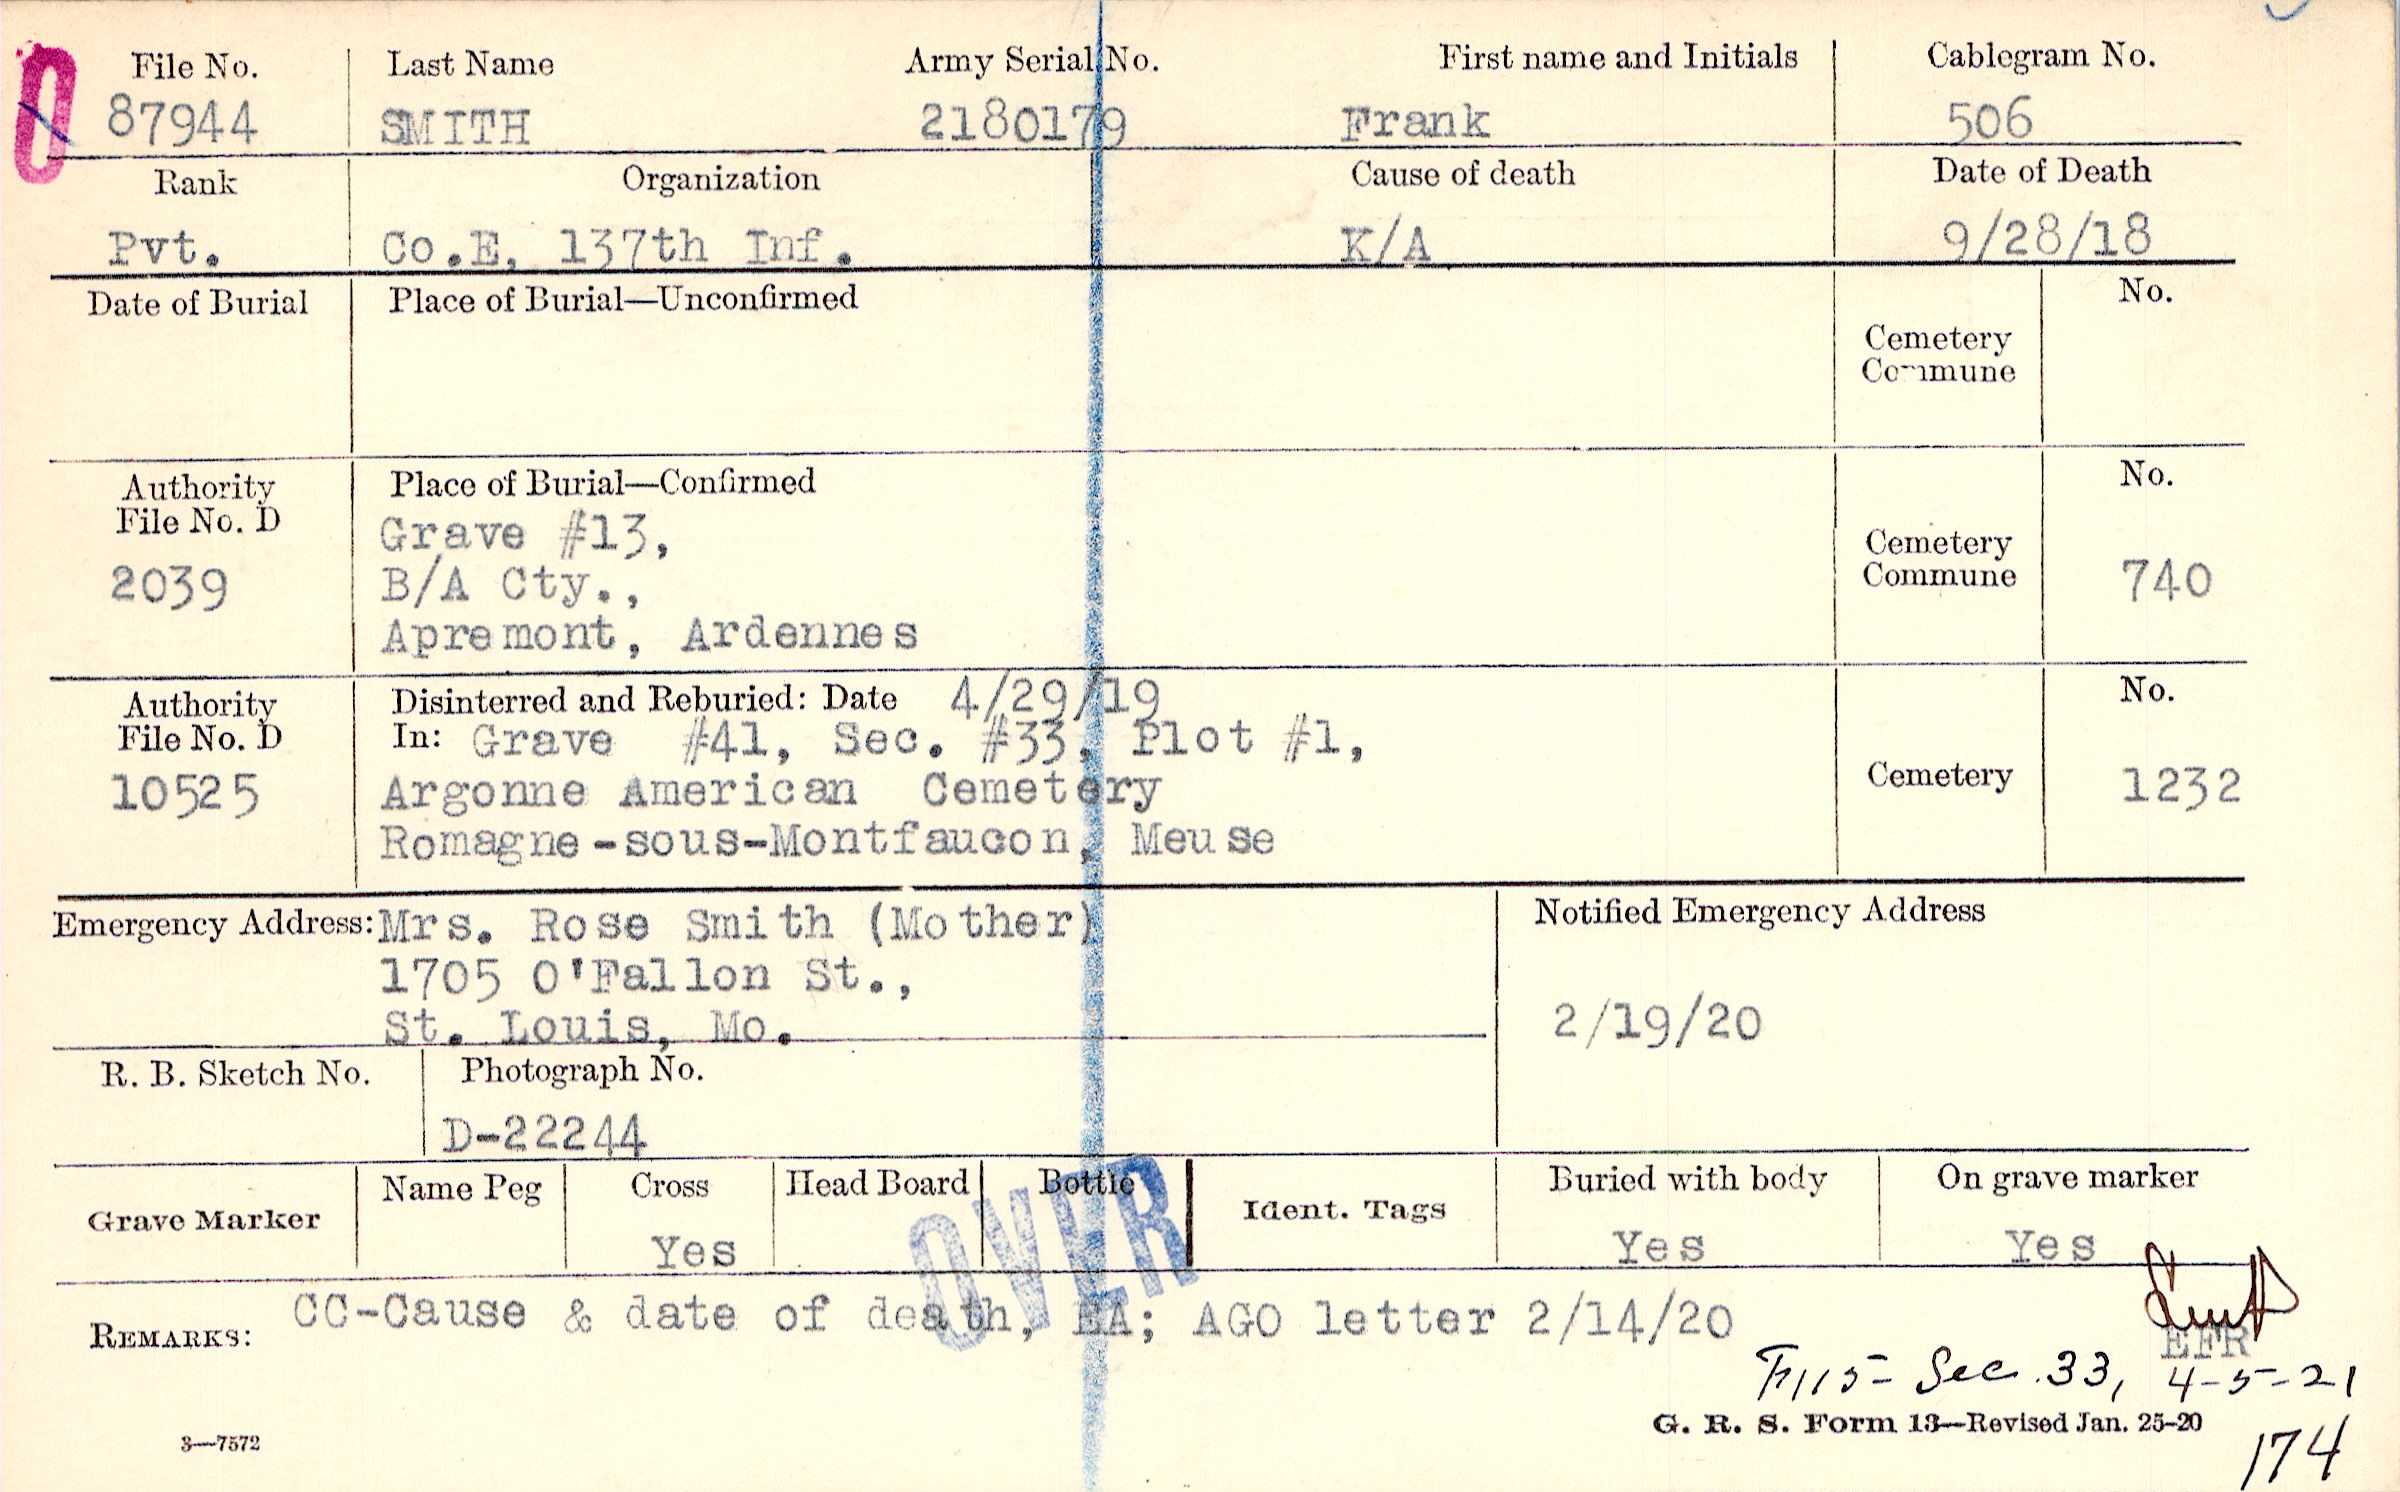 File No. Last Name Army Serial No. First name and Initials Cablegram No.
87944 SMITH 2180179 Frank 506
Rank Organization Cause of death Date of Death
Pvt. Co.E, 137th Inf. K/A 9/28/18
Date of Burial Place of Burial—Unconfirmed No.
Cemetery
Commune
Authority Place of Burial—Confirmed No.
File No. D Grave #13,
Cemetery
2039 B/A Cty., Commune 740
Apremont, Ardennes
Authority Disinterred and Reburied: Date 4/29/19 No.
File No. D In: Grave #41, Sec. #33, Plot #1,
10525 Argonne American Cemetery Cemetery 1232
Romagne-sous-Montfaucon, Meuse
Emergency Address: Mrs. Rose Smith (Mother) Notified Emergency Address
1705 O'Fallon St.,
St. Louis, Mo. 2/19/20
R. B. Sketch No. Photograph No.
D-22244
Grave Marker Name Peg Cross Head Board Bottle Ident. Tags Buried with body On grave marker
Yes Yes Yes
OVER
REMARKS: CC-Cause & date of death, EA; AGO letter 2/14/20
EFR
F115- Sec. 33, 4-5-21
G. R. S. Form 13—Revised Jan. 25-20
3—7572
174